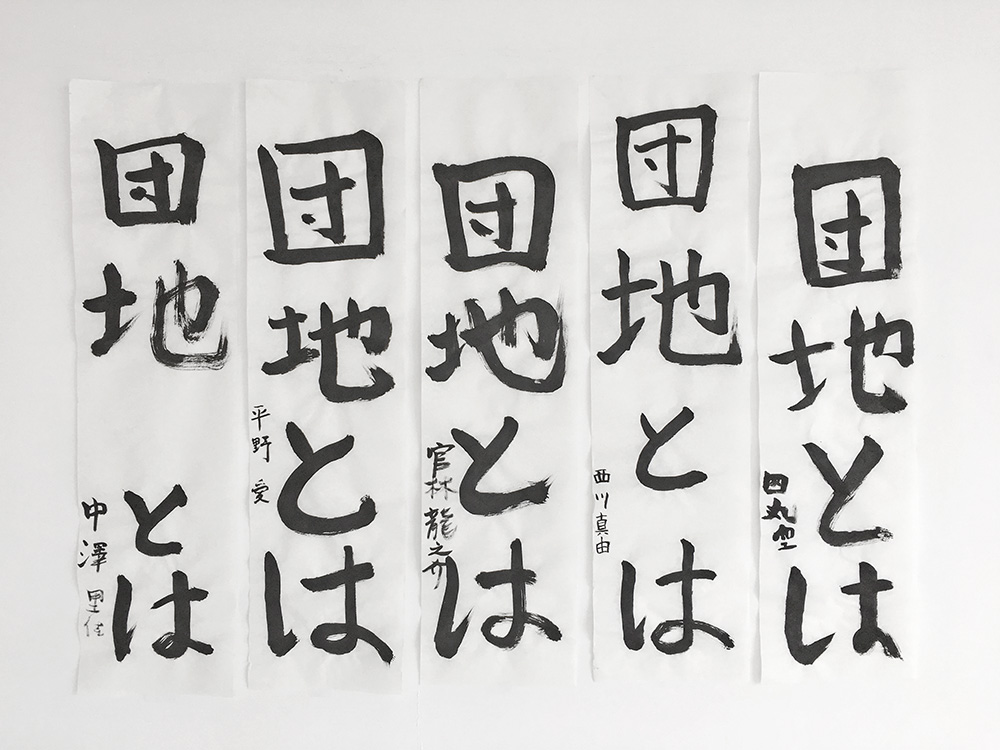 団地とは
団地とは
西川真由
団地とは
官林龍之介
団地とは
平野 愛
団地とは
中澤 里佳